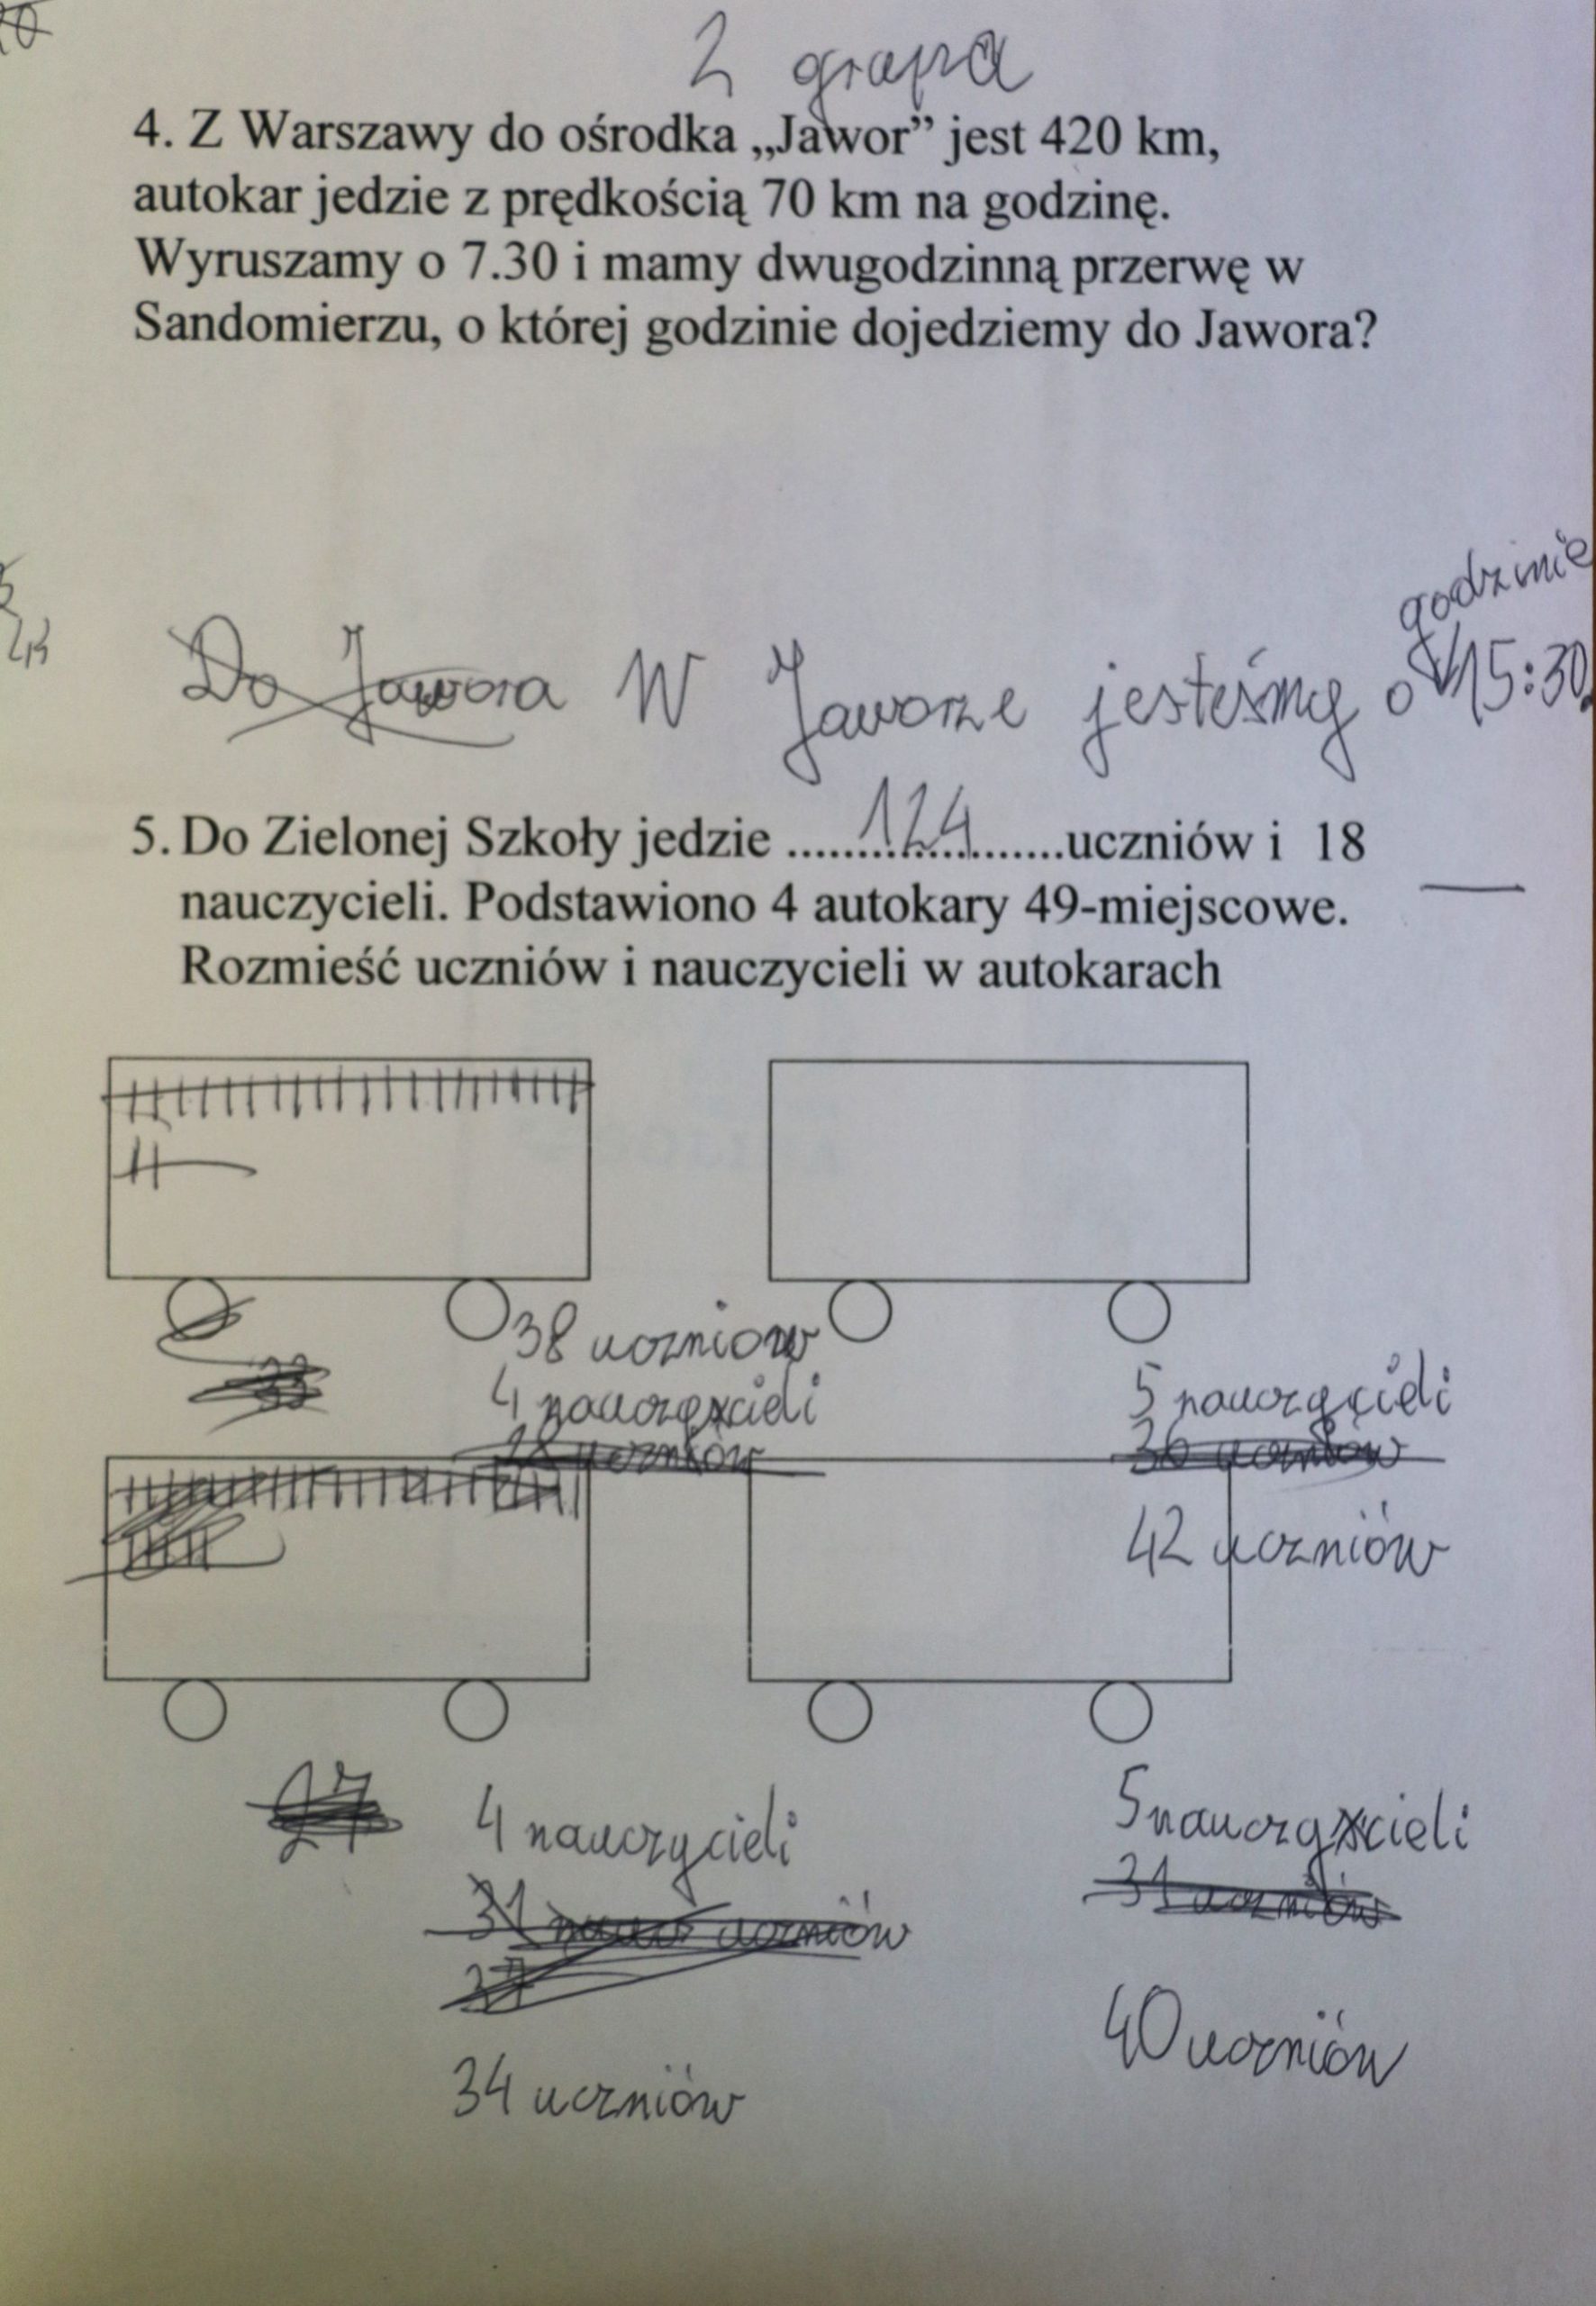 2 grupa
4. Z Warszawy do ośrodka „Jawor” jest 420 km,
autokar jedzie z prędkością 70 km na godzinę.
Wyruszamy o 7.30 i mamy dwugodzinną przerwę w
Sandomierzu, o której godzinie dojedziemy do Jawora?
godzinie
Do Jawora W Jaworze jesteśmy o 15:30.
5. Do Zielonej Szkoły jedzie ......124......uczniów i 18
nauczycieli. Podstawiono 4 autokary 49-miejscowe.
Rozmieść uczniów i nauczycieli w autokarach
38 uczniów
33
4 nauczycieli
5 nauczycieli
28 uczniów
36 uczniów
42 uczniów
27
4 nauczycieli
5 nauczycieli
31 uczniów
31 uczniów
37
34 uczniów
40 uczniów